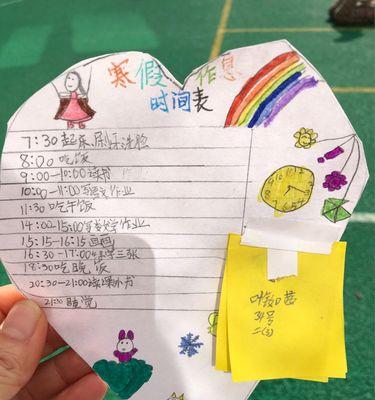 寒假作息
时间表
7:30起床、刷牙洗脸
8:00吃饭
9:00-10:00读书
10:00-11:00写语文作业
11:30吃午饭
14:00-15:00写数学作业
15:15-16:15画画
16:30-17:00练字三张
18:30吃晚饭
20:30-21:00读课外书
21:30睡觉
34号
二(3)